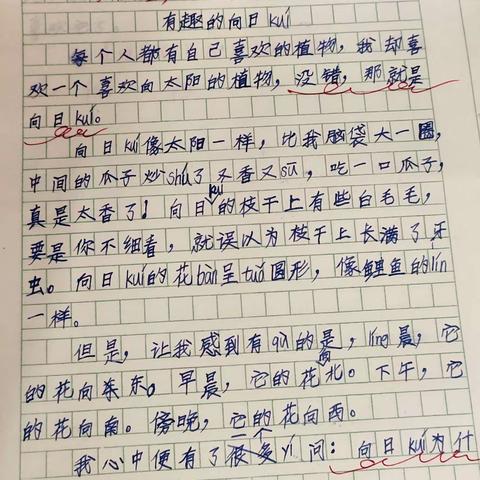 有趣的向日kuí
每个人都有自己喜欢的植物，我却喜
欢一个喜欢向太阳的植物，没错，那就是
向日kuí。
向日kuí像太阳一样，比我脑袋大一圈，
中间的瓜子炒shú了又香又sū，吃一口瓜子，
真是太香了！向日kuí的枝干上有些白毛毛，
要是你不细看，就误以为枝干上长满了牙
虫。向日kuí的花bàn呈tuǒ圆形，像鲤鱼的lín
一样。
但是，让我感到有qù的是，líng晨，它
的花向东东。早晨，它的花向北。下午，它
的花向南。傍晚，它的花向西。
我心中便有了很多个yí问：向日kuí为什